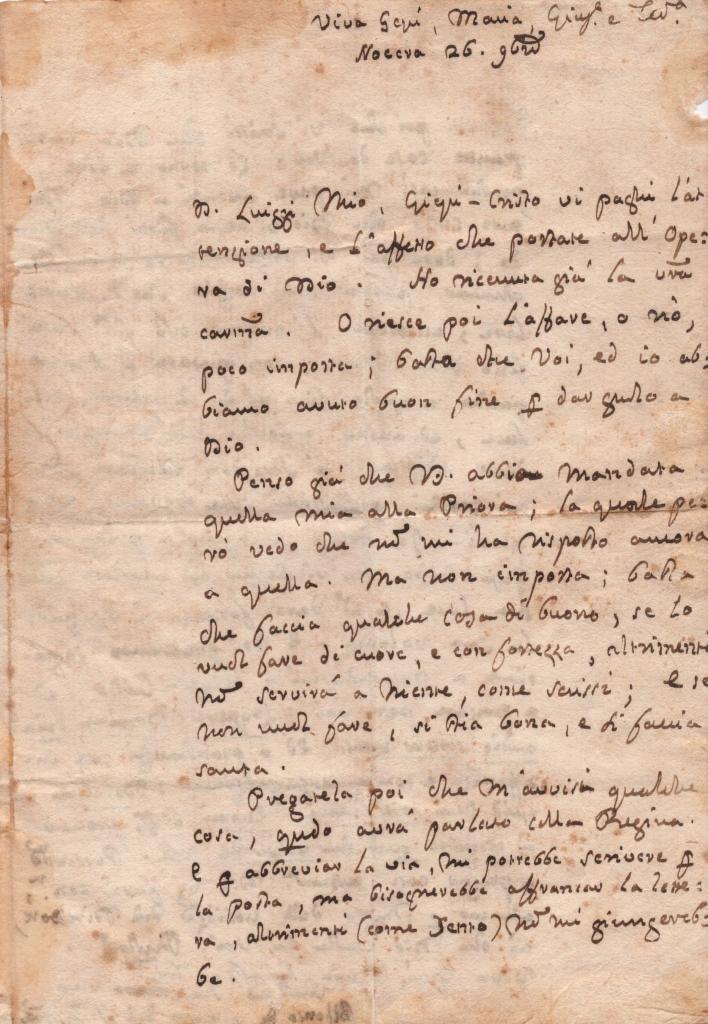 Viva Gesù, Maria, Gius.e e Ter.a
Nocera 26. 9bre
D. Luiggi Mio, Giesù-Cristo vi paghi l'at
tenzione, e l'affetto che portate all'Ope=
ra di Dio. Ho ricevuta già la vra
carima. O riesce poi l'affare, o nò,
poco importa; basta che Voi, ed io ab=
biamo avuto buon fine p dar gusto a
Dio.
Penso già che D. abbia mandata
quella mia alla Priora; la quale pe=
rò vedo che nō mi ha risposto ancora
a quella. Ma non importa; basta
che faccia qualche cosa di buono, se lo
vuol fare di cuore, e con fortezza, altrimenti
nō servirà a niente, come scrissi; e se
non vuol fare, si stia bona, e si faccia
santa.
Pregatela poi che m'avvisi qualche
cosa, qūdo avrà parlato colla Regina.
E p abbreviar la via, mi potrebbe scrivere p
la posta, ma bisognerebbe affrancar la lette=
ra, altrimenti (come sento) nō mi giungereb=
be.